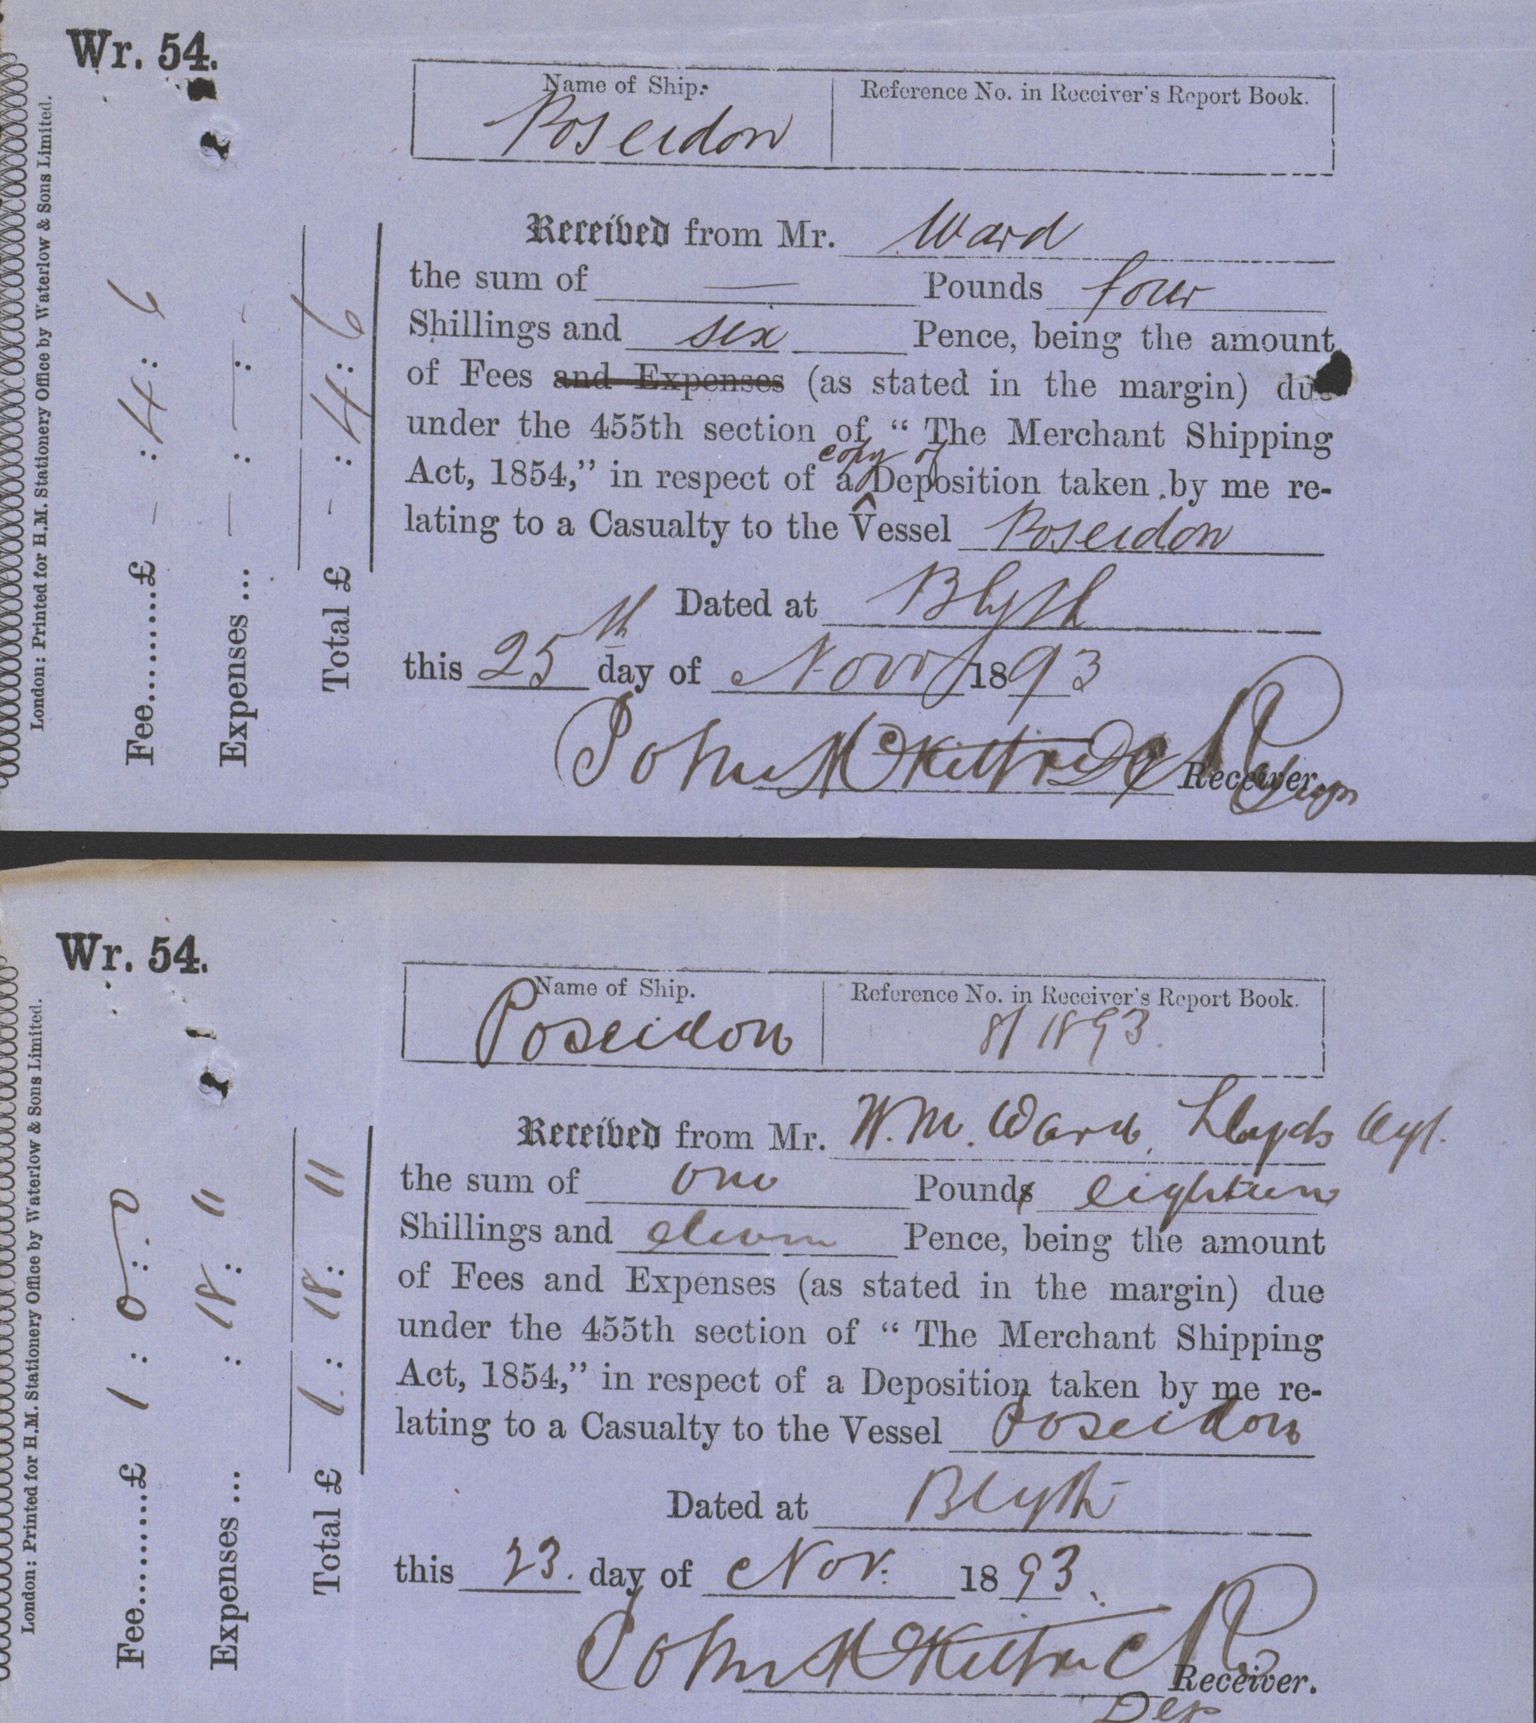 Wr. 54.
Name of Ship.
Poseidon
Reference No. in Receiver's Report Book.
London: Printed for H.M. Stationery Office by Waterlow & Sons Limited.
Fee.........£ - : 4 : 6
Expenses ... - : - : -
Total £ - : 4 : 6
Received from Mr. Ward
the sum of — Pounds four
Shillings and six Pence, being the amount
of Fees and Expenses (as stated in the margin) due
under the 455th section of “The Merchant Shipping
copy of
Act, 1854,” in respect of a Deposition taken by me re-
lating to a Casualty to the Vessel Poseidon
Dated at Blyth
this 25th day of Novr 1893
John McKittrick
Receiver.
Wr. 54.
Name of Ship.
Poseidon
Reference No. in Receiver's Report Book.
8/1893.
London: Printed for H.M. Stationery Office by Waterlow & Sons Limited.
Fee.........£ 1 : 0 : 0
Expenses ... : 18 : 11
Total £ 1 : 18 : 11
Received from Mr. W. M. Ward, Lloyds Agt.
the sum of one Pounds eighteen
Shillings and eleven Pence, being the amount
of Fees and Expenses (as stated in the margin) due
under the 455th section of “The Merchant Shipping
Act, 1854,” in respect of a Deposition taken by me re-
lating to a Casualty to the Vessel Poseidon
Dated at Blyth
this 23. day of Nov. 1893.
John McKittrick
Receiver.
Dep